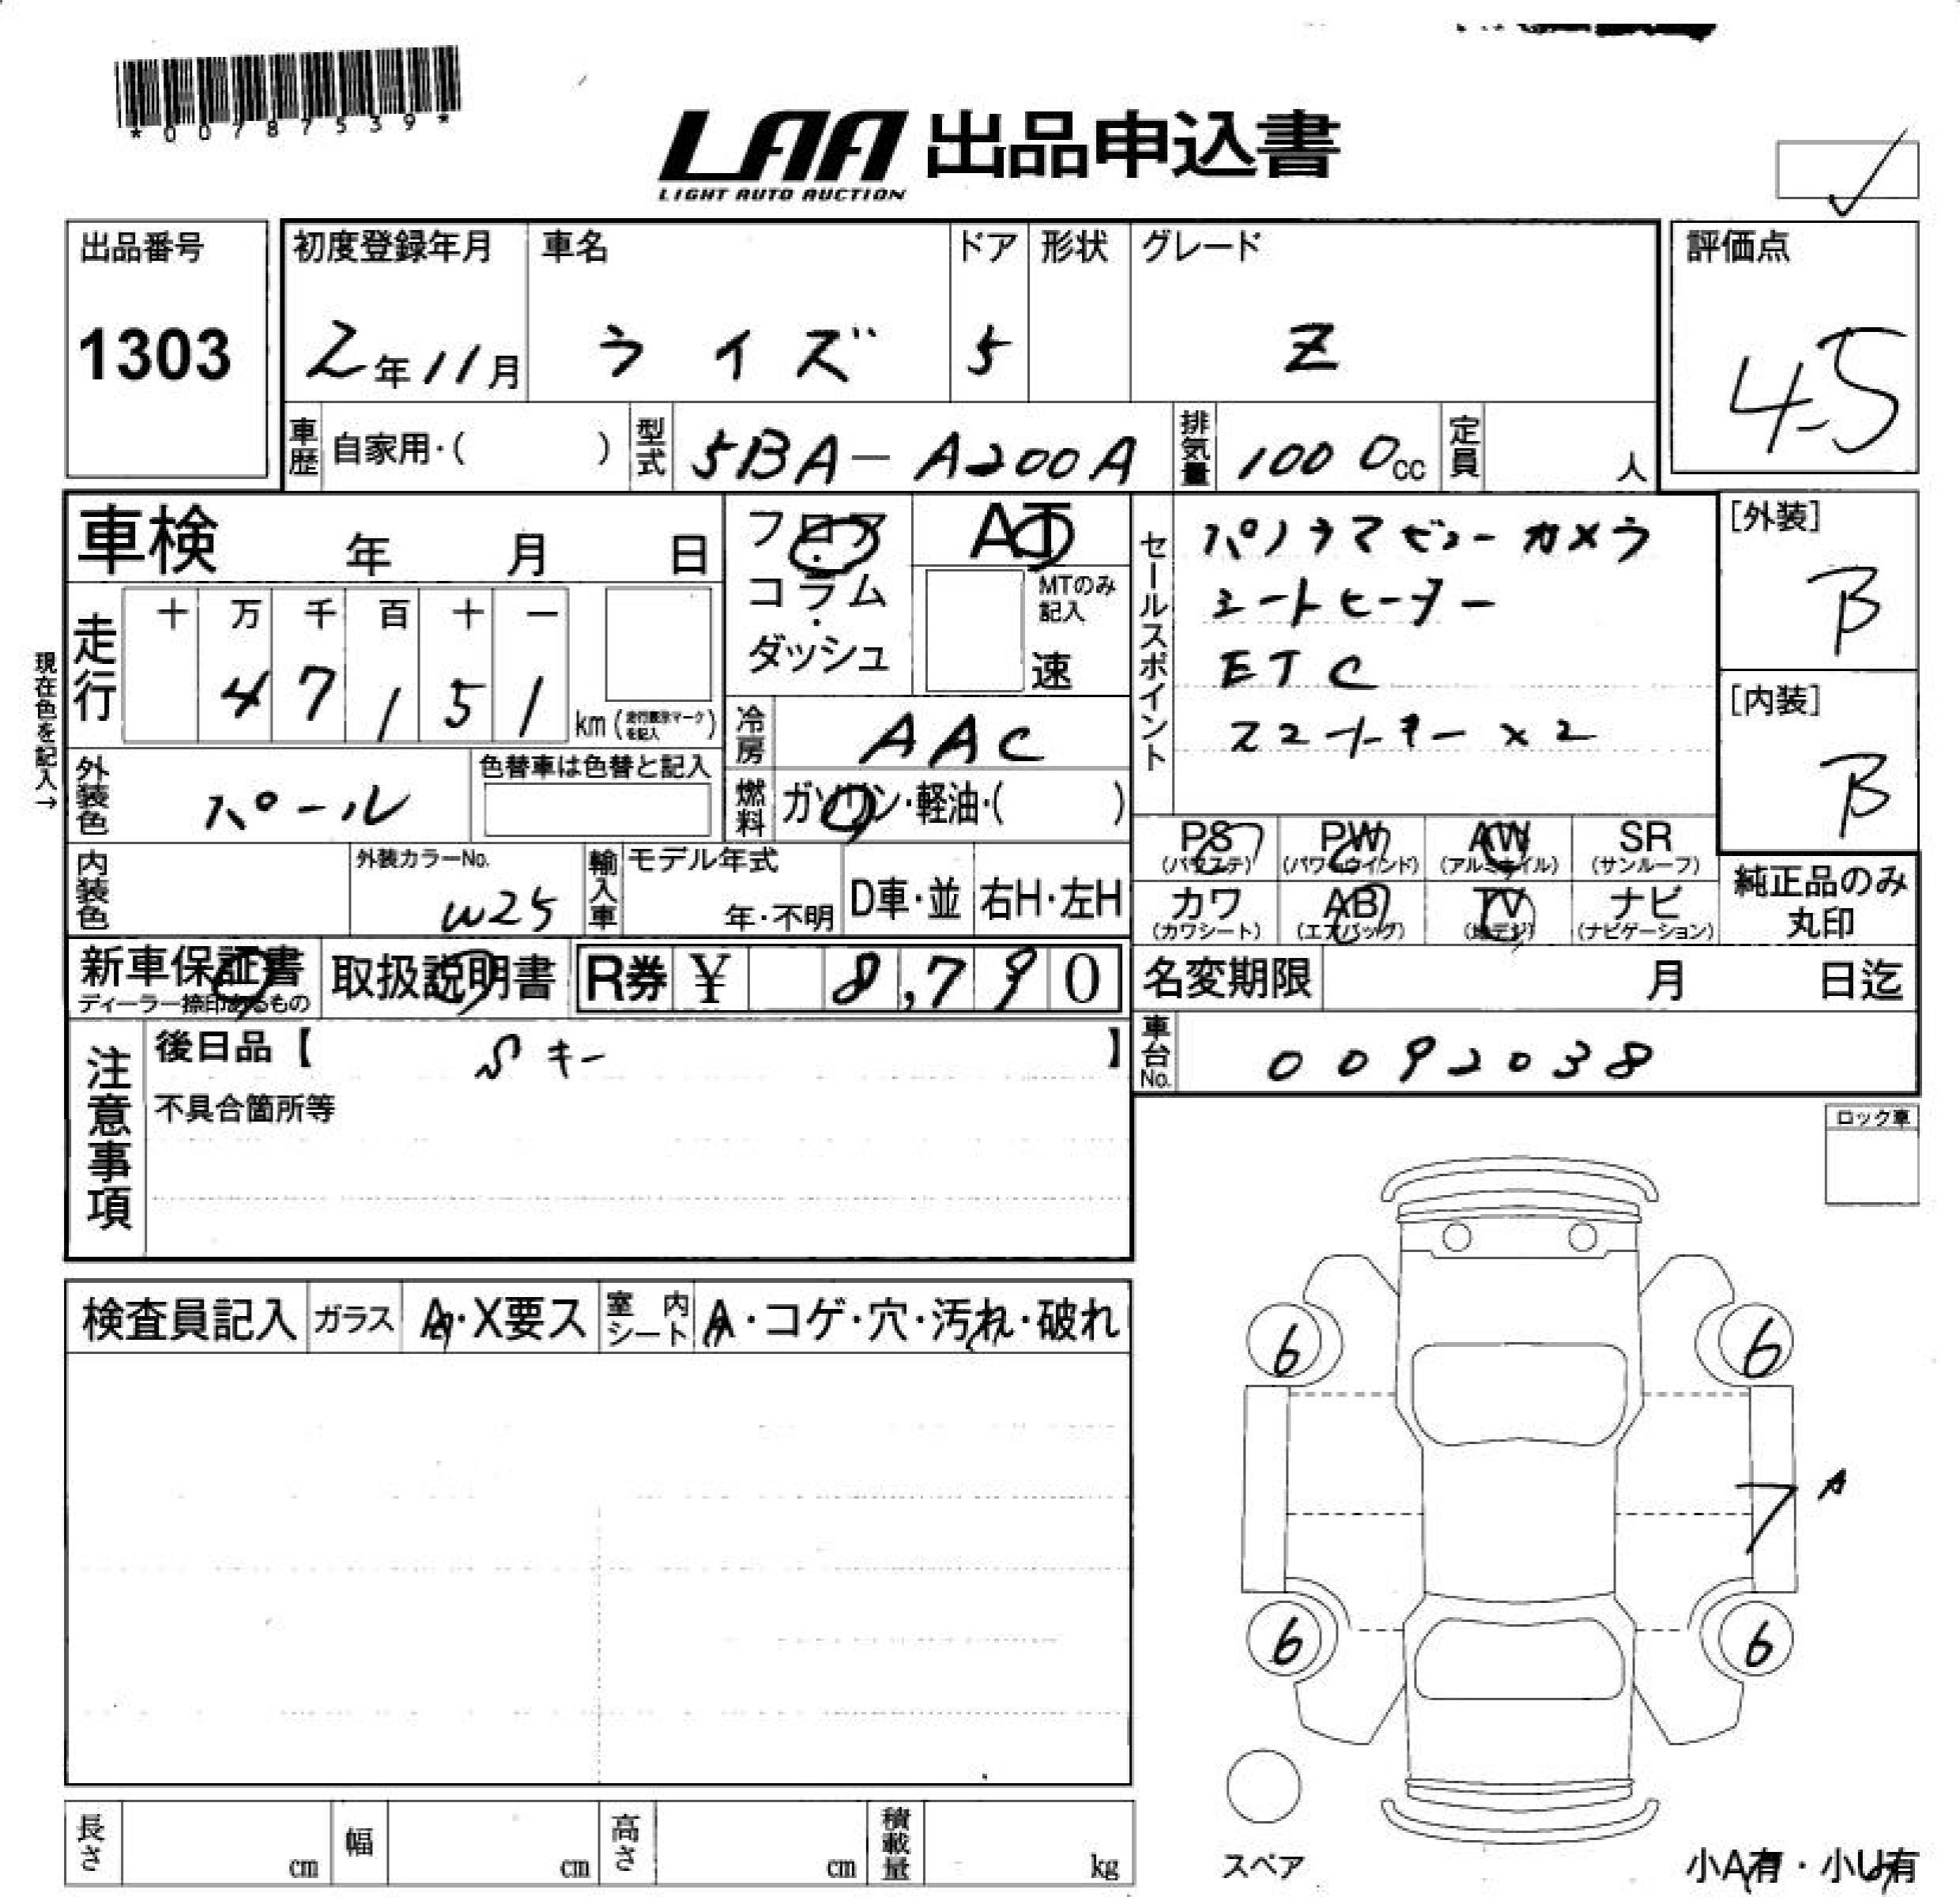 *00787539*
LAA 出品申込書
LIGHT AUTO AUCTION
出品番号 初度登録年月 車名 ドア 形状 グレード 評価点
1303 2年11月 ライズ 5 Z 4.5
車歴 自家用・( ) 型式 5BA-A200A 排気量 1000cc 定員 人
車検 年 月 日 フロア・コラム・ダッシュ AT
MTのみ記入 速
セールスポイント
パノラマビューカメラ
シートヒーター
ETC
スマートキー×2
[外装] B
[内装] B
現在色を記入→
走行 十 万 千 百 十 一
4 7 1 5 1 km (走行表示マークを記入)
冷房 AAC
外装色 パール 色替車は色替と記入 燃料 ガソリン・軽油・( )
PS (パワステ) PW (パワーウインド) AW (アルミホイル) SR (サンルーフ)
カワ (カワシート) AB (エアバッグ) TV (地デジ) ナビ (ナビゲーション)
純正品のみ丸印
内装色 外装カラーNo. W25 輸入車 モデル年式 年・不明 D車・並 右H・左H
新車保証書 ディーラー捺印あるもの 取扱説明書 R券 ¥ 8,790 名変期限 月 日迄
注意事項 後日品【 Sキー 】 車台No. 0092038
不具合箇所等
ロック車
検査員記入 ガラス A・X要ス 室内シート A・コゲ・穴・汚れ・破れ
6 6
7 A
6 6
スペア
長さ cm 幅 cm 高さ cm 積載量 kg
小A有・小U有